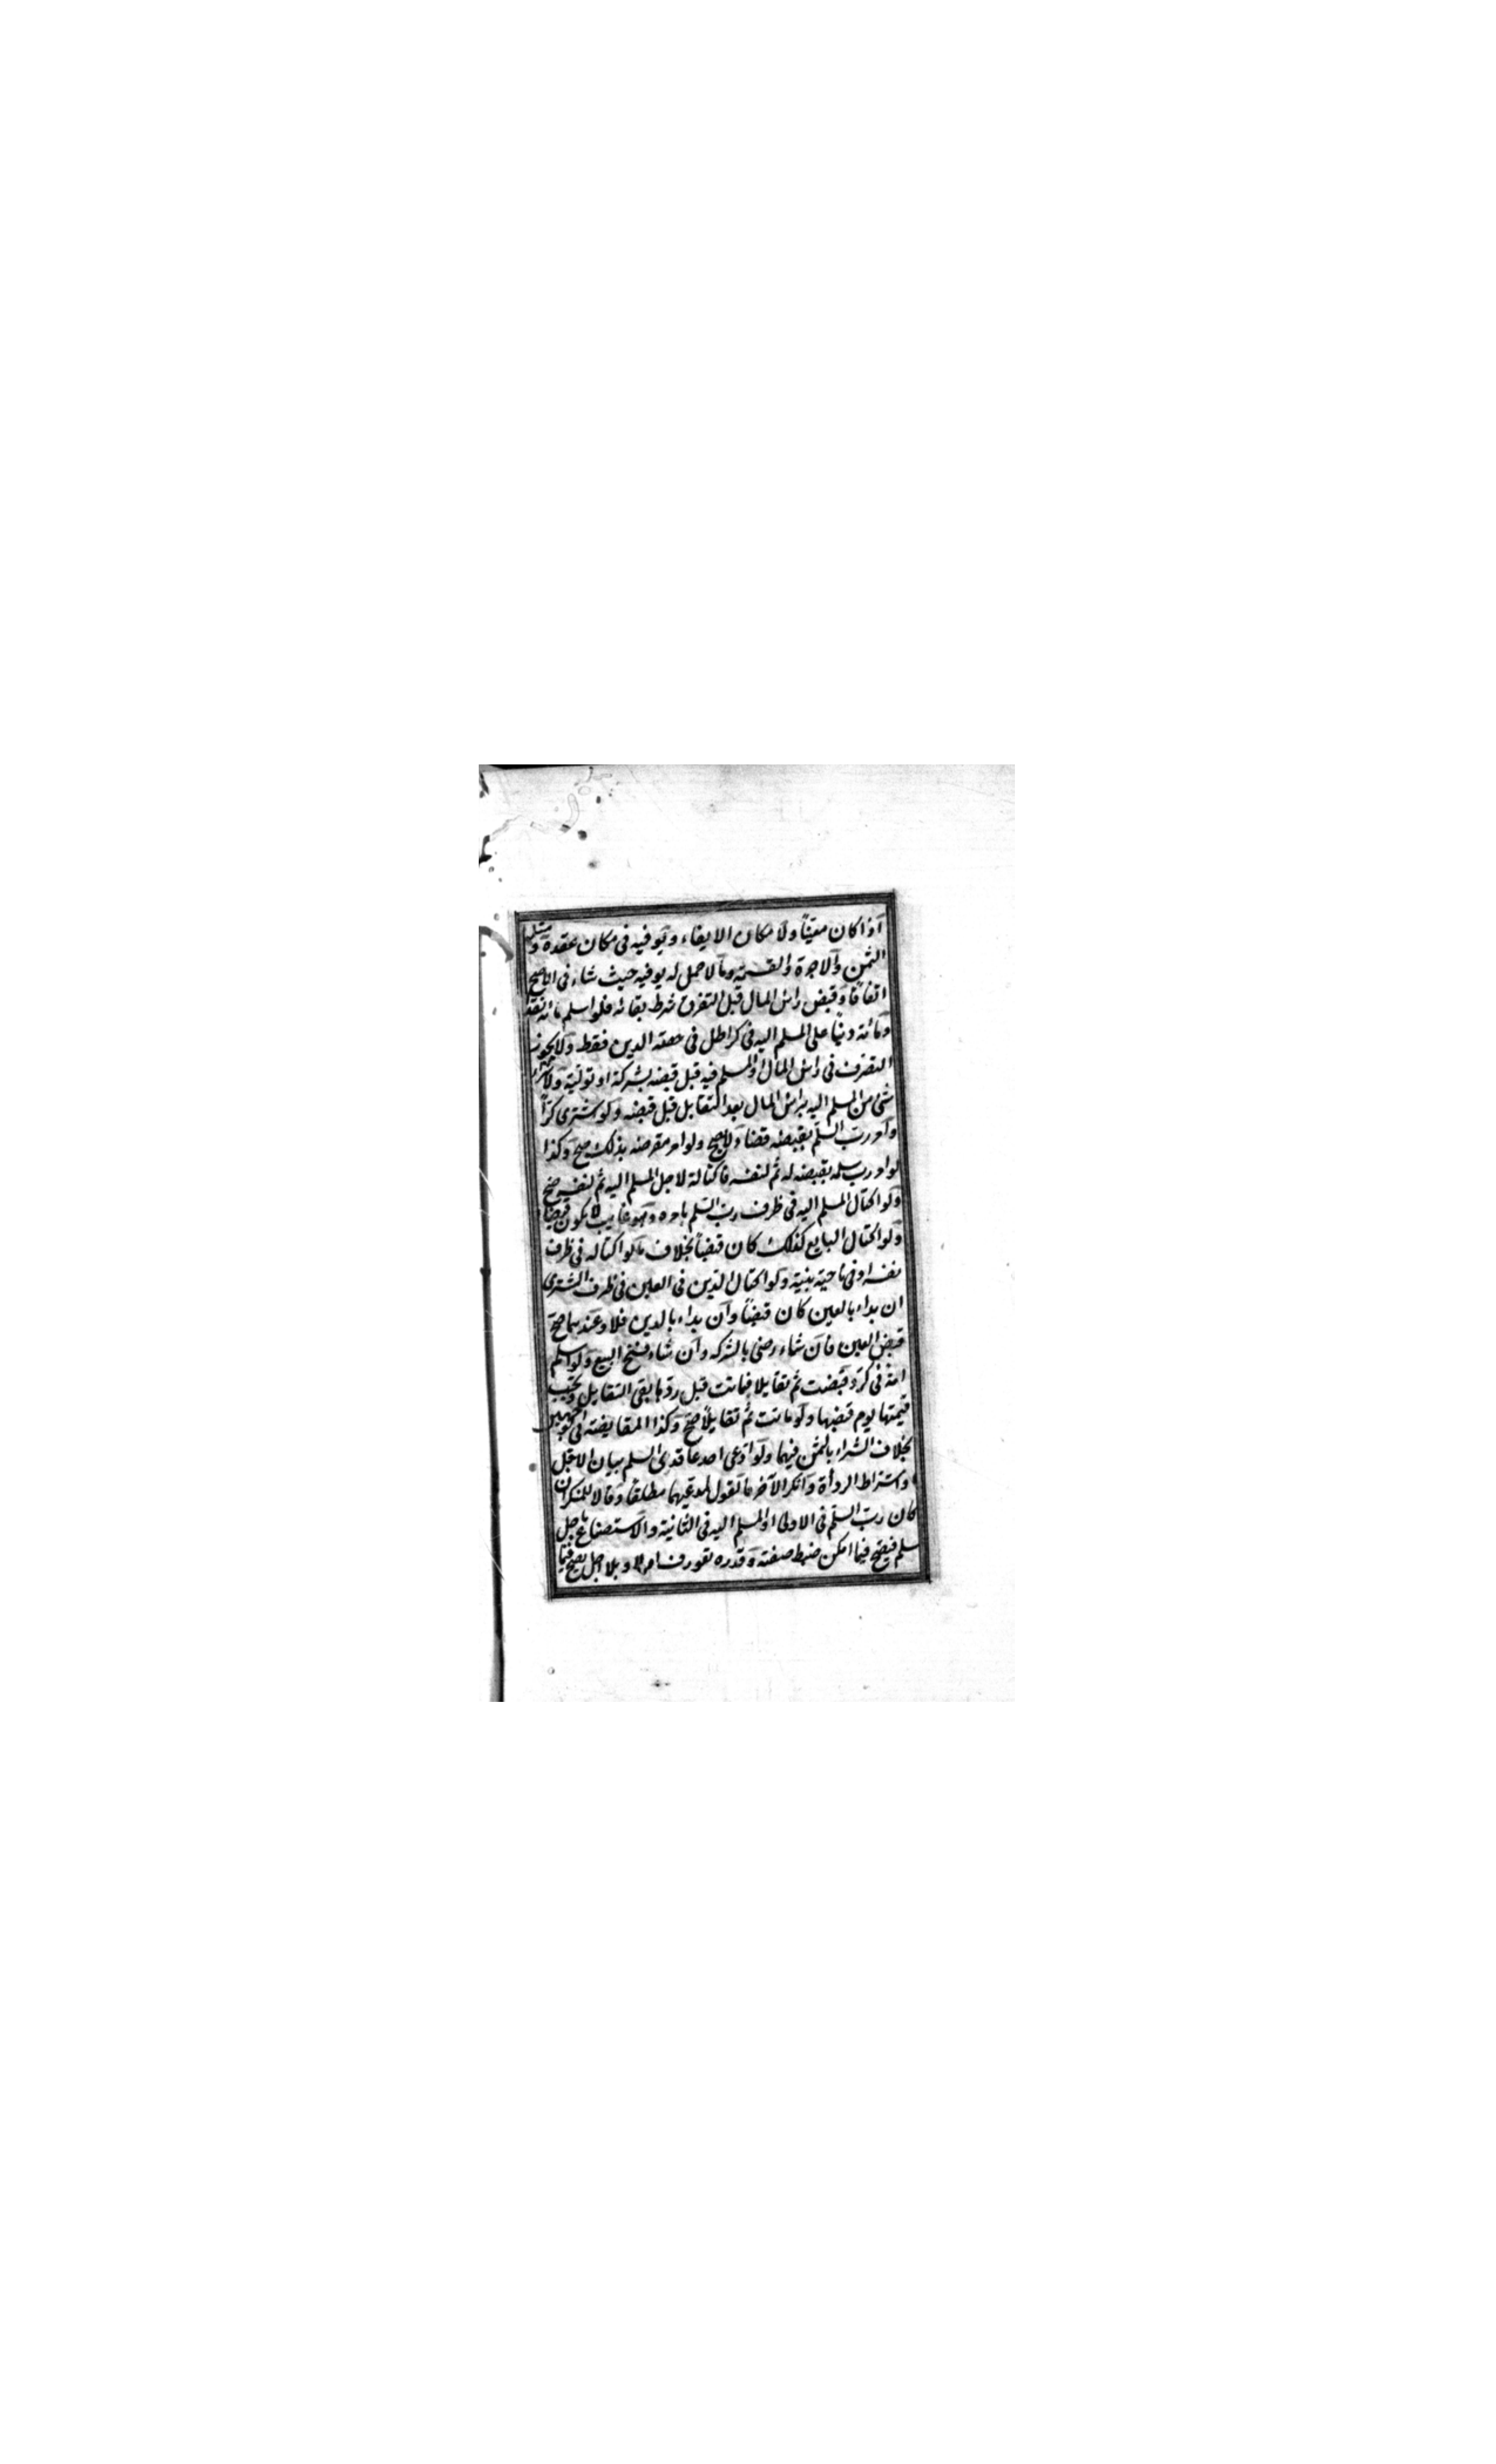 اذا كان معيناً ولا مكان الايفاء ويوفيه فى مكان عقده ومثله
الثمن والاجرة والقسمة ومالا حمل له يوفيه حيث شاء فى الاصح
اتفاقا وقبض راس المال قبل التفرق شرط بقائه فلو اسلم مائة نقدا
ومائة دينا على المسلم اليه فى كر بطل فى حصة الدين فقط ولا يجوز
التصرف فى راس المال او المسلم فيه قبل قبضه بشركة او تولية ولا شراء
شئ من المسلم اليه براس المال بعد التقايل قبل قبضه ولو اشترى كرّاً
وامر ربّ السلم بقبضه قضاء لا يصح ولو امر مقرضه بذلك صح وكذا
لو امر رب سلمه بقبضه له ثم لنفسه فاكتاله لاجل المسلم اليه ثم لنفسه صح
ولو اكتال المسلم اليه فى ظرف ربّ السّلم بامره وهو غايب لا يكون قبضا
ولو اكتال البايع كذلك كان قبضاً بخلاف ما لو اكتاله فى ظرف
نفسه او فى ناحية بيته ولو اكتال الدّين فى العين فى ظرف المشترى
ان بداء بالعين كان قبضاً وان بداء بالدين فلا وعندهما صح
قبض العين فان شاء رضى بالشركه وان شاء فسخ البيع ولو اسلم
امة فى كر وقبضت ثم تقايلا فماتت قبل ردّها بقى التقايل وتجب
قيمتها يوم قبضها ولو ماتت ثم تقايلا صح وكذا المقايضة فى الوجهين
بخلاف الشراء بالثمن فيهما ولو ادّعى احد عاقدى السلم بيان الاجل
او اشتراط الرداءة وانكر الآخر فالقول لمدعيهما مطلقاً وقالا للمنكر ان
كان ربّ السلّم فى الاولى او المسلم اليه فى الثانية والاستصناع باجل
سلم فيصح فيما امكن ضبط صفته وقدره تعورف اولا وبلا اجل يصح فيما